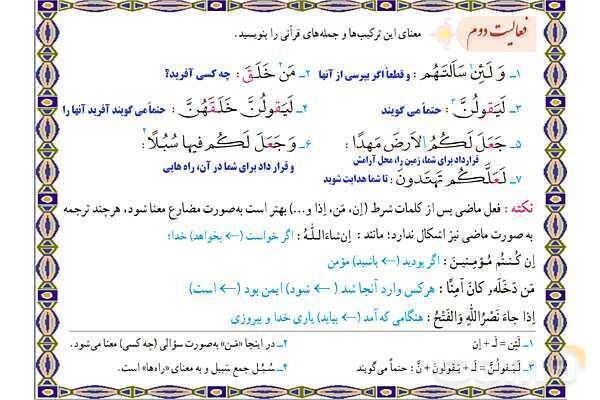 فعالیت دوم
معنای این ترکیب‌ها و جمله‌های قرآنی را بنویسید.
۱ـ وَ لَئِن۱ سَاَلتَهُم : و قطعاً اگر بپرسی از آنها ۲ـ مَن۲ خَلَقَ : چه کسی آفرید؟
۳ـ لَیَقولُنَّ۳ : حتماً می گویند ۴ـ لَیَقولُنَّ خَلَقَهُنَّ : حتماً می گویند آفرید آنها را
۵ـ جَعَلَ لَکُمُ الاَرضَ مَهدًا : قرارداد برای شما، زمین را، محل آرامش
۶ـ وَ جَعَلَ لَکُم فیها سُبُلًا۴ : و قرار داد برای شما در آن، راه هایی
۷ـ لَعَلَّکُم تَهتَدونَ : تا شما هدایت شوید
نکته : فعل ماضی پس از کلمات شرط (اِن، مَن، اِذا و...) بهتر است به‌صورت مضارع معنا شود، هرچند ترجمه
به صورت ماضی نیز اشکال ندارد؛ مانند : اِن شاءَ اللّٰهُ : اگر خواست (← بخواهد) خدا؛
اِن کُنتُم مُؤمِنینَ : اگر بودید (← باشید) مؤمن
مَن دَخَلَهو کانَ آمِنًا : هرکس وارد آنجا شد (← شود) ایمن بود (← است)
اِذا جاءَ نَصرُ اللّٰهِ وَالفَتحُ : هنگامی که آمد (← بیاید) یاری خدا و پیروزی
۱ـ لَئِن = لَـ + اِن ۲ـ در اینجا «مَن» به‌صورت سؤالی (چه کسی) معنا می‌شود.
۳ـ لَیَقولُنَّ = لَـ + یَقولونَ + نَّ : حتماً می‌گویند ۴ـ سُبُل جمع سَبیل و به معنای «راه‌ها» است.